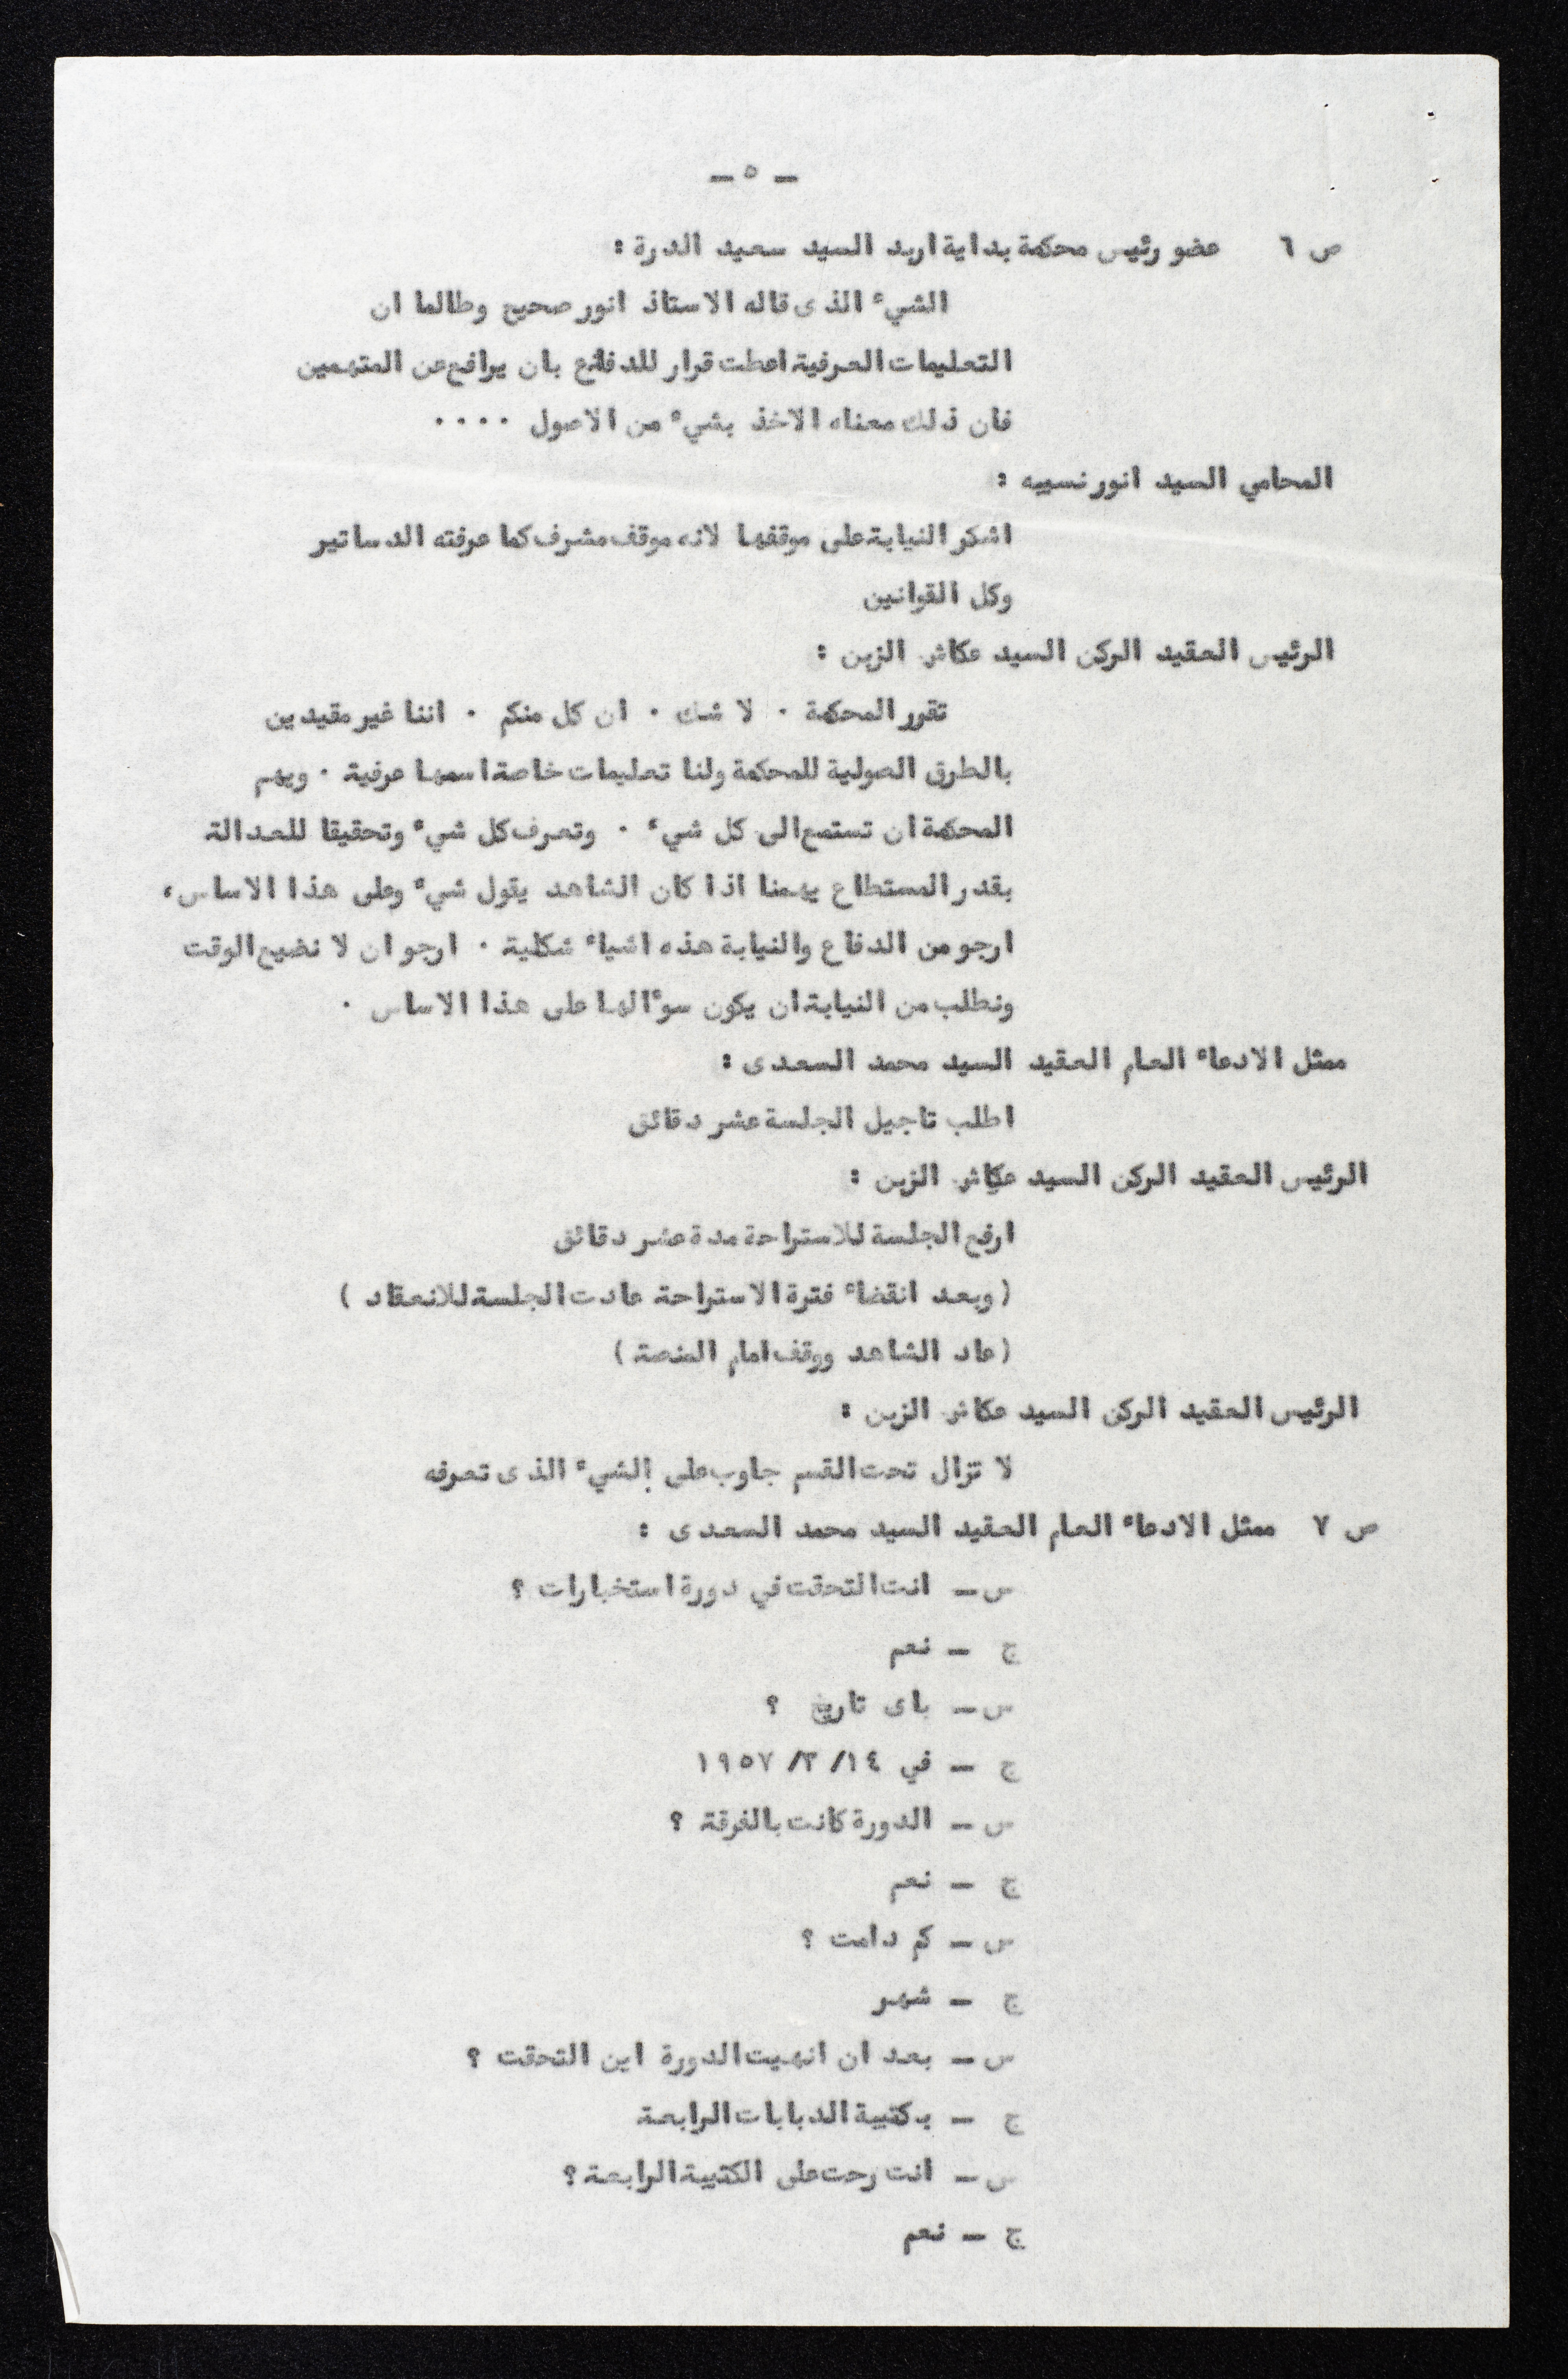 — ٥ —
ص ٦ عضو رئيس محكمة بداية اربد السيد سعيد الدرة :
الشيء الذى قاله الاستاذ انور صحيح وطالما ان
التعليمات العرفية اعطت قرار للدفاع بان يرافع عن المتهمين
فان ذلك معناه الاخذ بشيء من الاصول ٠٠٠٠
المحامي السيد انور نسيبه :
اشكر النيابة على موقفها لانه موقف مشرف كما عرفته الدساتير
وكل القوانين
الرئيس العقيد الركن السيد عكاش الزبن :
تقرر المحكمة ٠ لا شك ٠ ان كل منكم ٠ اننا غير مقيدين
بالطرق الصولية للمحكمة ولنا تعليمات خاصة اسمها عرفية ٠ ويهم
المحكمة ان تستمع الى كل شيء ٠ وتعرف كل شيء وتحقيقا للعدالة
بقدر المستطاع يهمنا اذا كان الشاهد يقول شيء وعلى هذا الاساس،
ارجو من الدفاع والنيابة هذه اشياء شكلية ٠ ارجو ان لا نضيع الوقت
ونطلب من النيابة ان يكون سوءالها على هذا الاساس ٠
ممثل الادعاء العام العقيد السيد محمد السعدى :
اطلب تاجيل الجلسة عشر دقائق
الرئيس العقيد الركن السيد عكاش الزبن :
ارفع الجلسة للاستراحة مدة عشر دقائق
( وبعد انقضاء فترة الاستراحة عادت الجلسة للانعقاد )
( عاد الشاهد ووقف امام المنصة )
الرئيس العقيد الركن السيد عكاش الزبن :
لا تزال تحت القسم جاوب على الشيء الذى تعرفه
ص ٧ ممثل الادعاء العام العقيد السيد محمد السعدى :
س — انت التحقت في دورة استخبارات ؟
ج — نعم
س — باى تاريخ ؟
ج — في ١٤/ ٣/ ١٩٥٧
س — الدورة كانت بالفرقة ؟
ج — نعم
س — كم دامت ؟
ج — شهر
س — بعد ان انهيت الدورة اين التحقت ؟
ج — بكتيبة الدبابات الرابعة
س — انت رحت على الكتيبة الرابعة ؟
ج — نعم